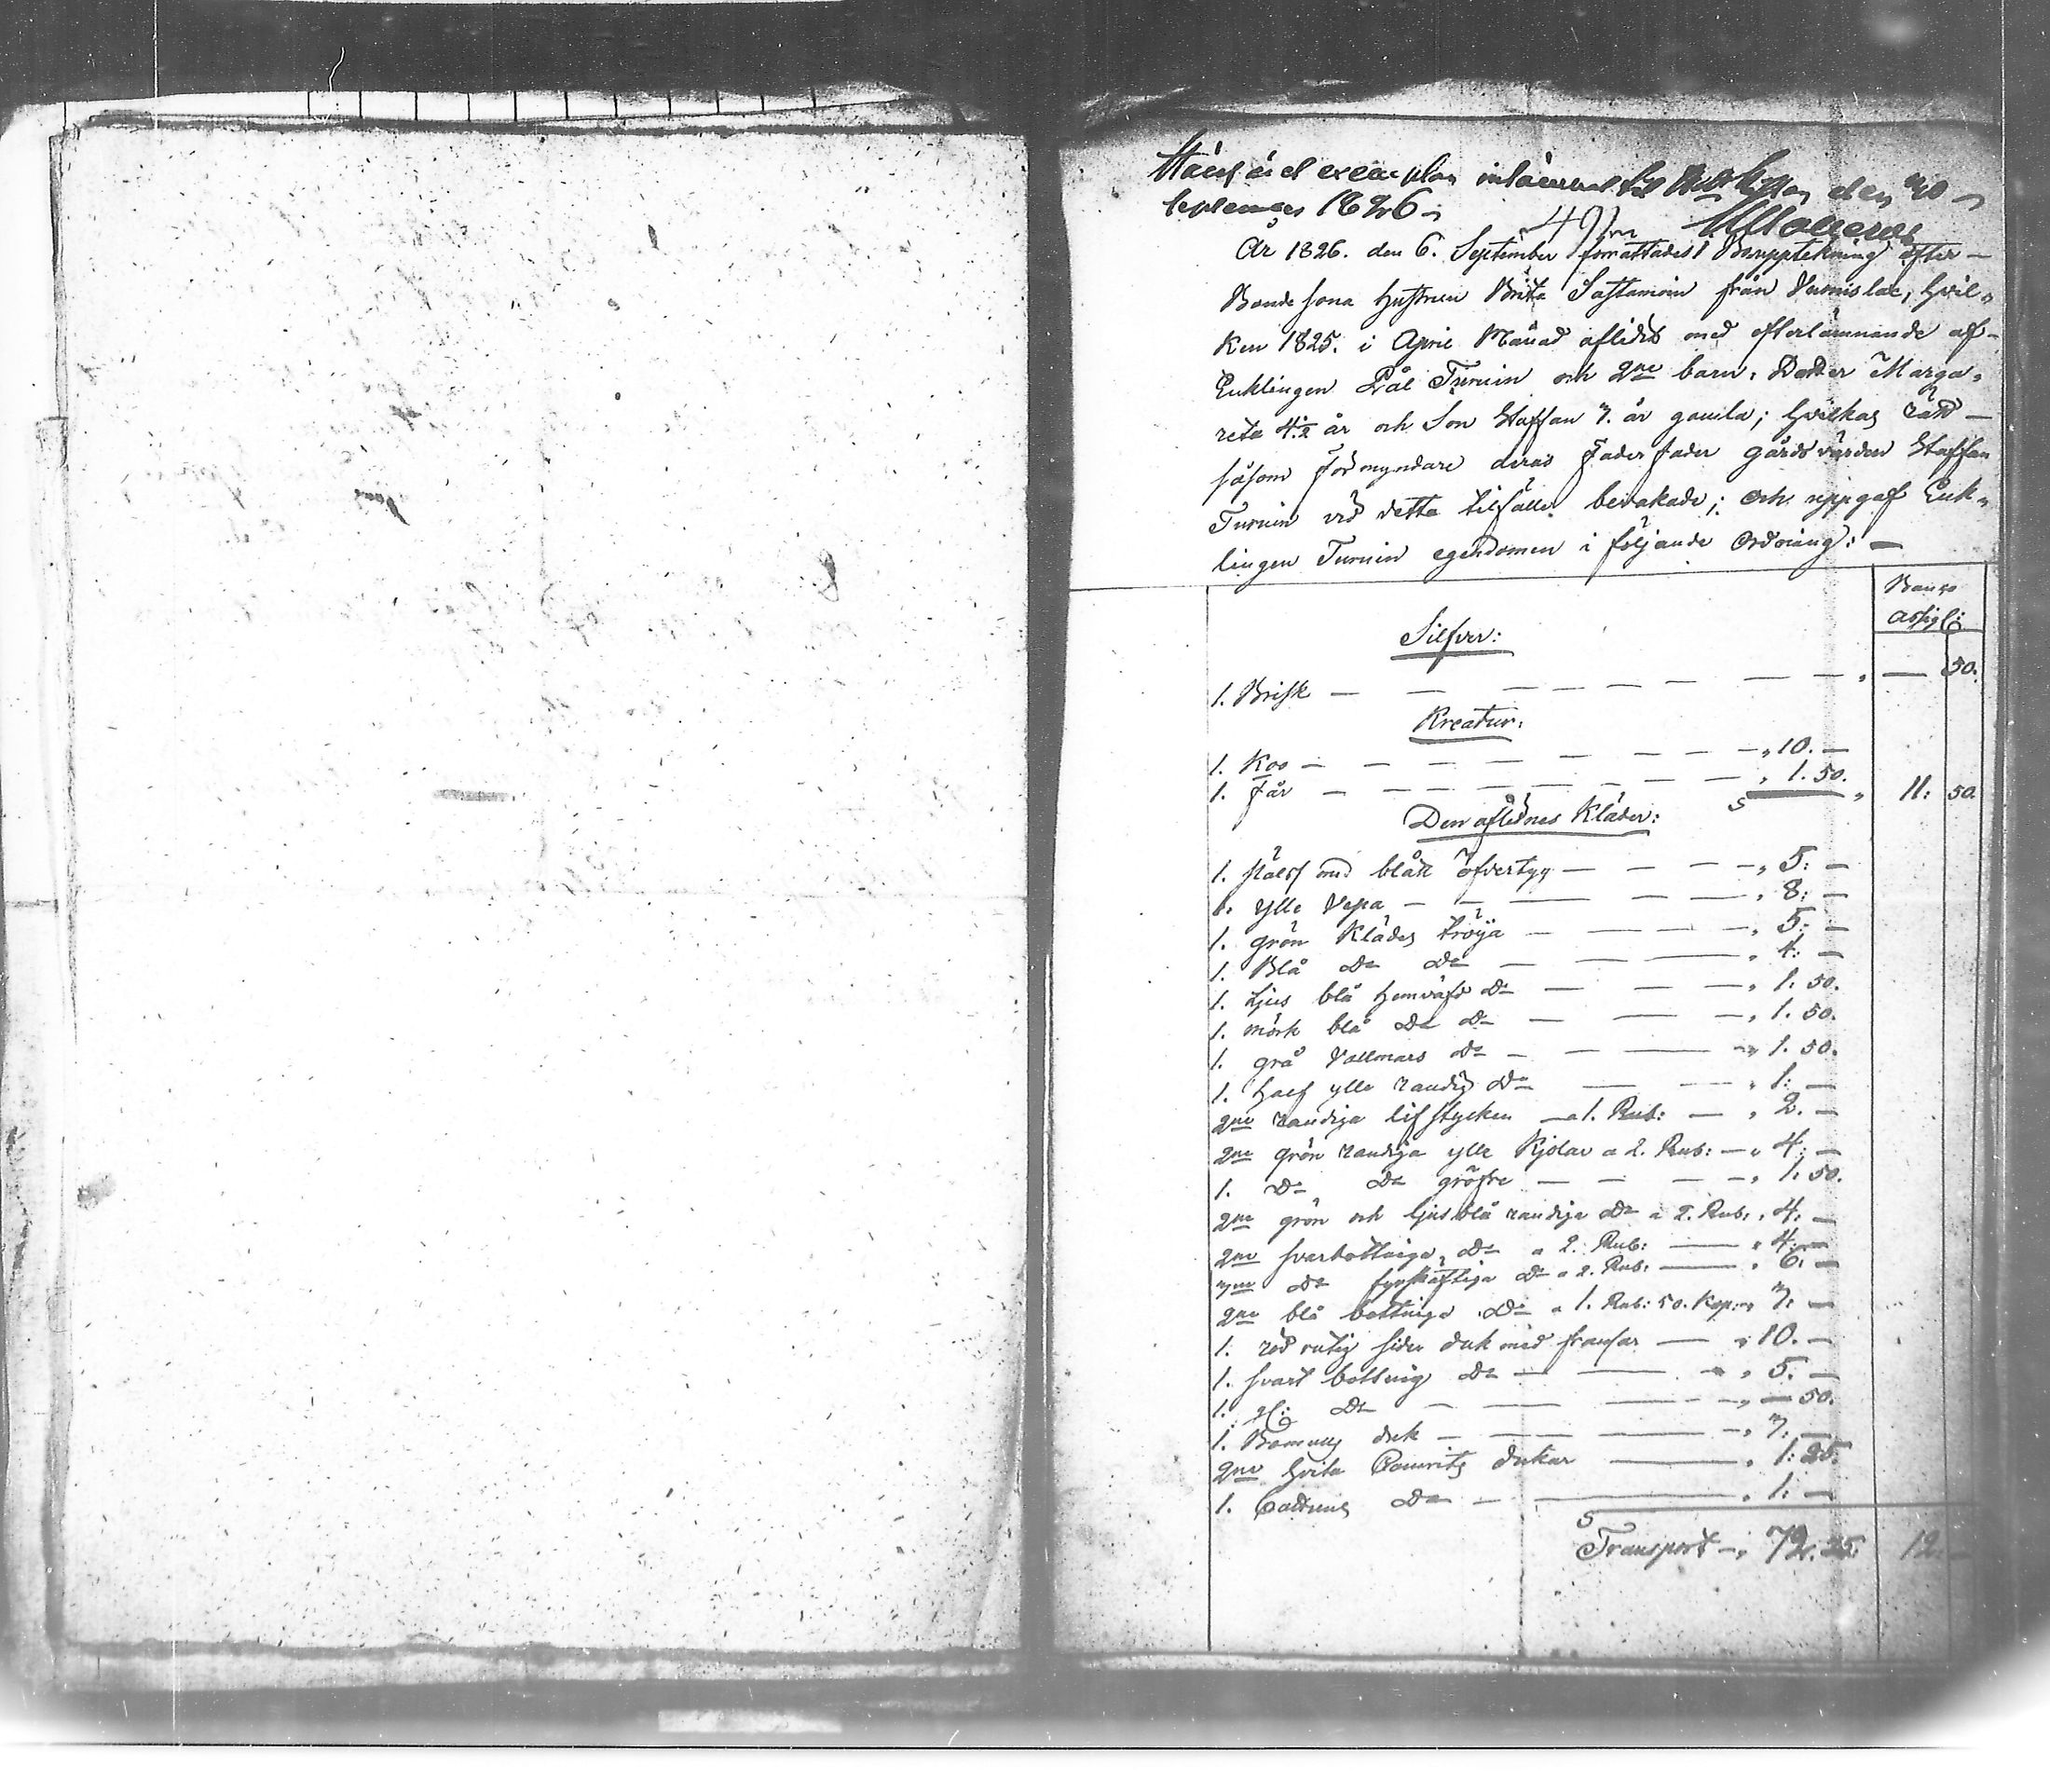 den 30
September 1826
År 1826. den 6. September förrättades Boupptekning efter
Bonde sona hustrun Brita Sastamoin från Vumislax, hvil-
ken 1825. i April Månad aflidit med efterlämnande af
Enklingen Pål Turuin och 2ne barn, Dotter Marga-
reta 4½ år och Son Staffan 7. år gamla; hvilkas rätt
såsom Förmyndare deras Fader fader gårdsvärden Staffan
Turuin vid detta tilfälle bevakade; och uppgaf Enk-
lingen Turuin egendomen i följande Ordning: —
Banco
assigl:
Silfver:
1. Brisk — — — — 50.
Kreatur:
1. Koo — — — 10. —
1. Får — — — 1. 50. 11: 50.
Den aflednes Kläder:
1. med blått öfvertyg — — 5: —
1. ylle Vepa — — 8: —
1. grön Klädes tröja — — 5: —
1. Blå do do — — 4: —
1. Ljus blå hemväfd do — — 1: 50.
1. mörk blå do do — — 1. 50.
1. grå Vallmars do — — 1. 50.
1. Half ylle randig do — — 1: —
2ne randiga lifstycken a 1. Rub: — 2. —
2ne grön randiga ylle Kjolar a 2. Rub: — 4: —
1. do do gröfre — — 1: 50.
2ne grön och ljusblå randiga do a 2. Rub: 4: —
2ne svartbottniga do a 2. Rub: — 4: —
3ne do fyrskäftiga do a 2. Rub: — 6: —
2ne blå bottniga do a 1. Rub: 50. Kop: 3: —
1. röd rutig siden duk med fransar — 10. —
1. svart bottnig do — — 5. —
1. gl: do — — — 50.
1. Bomulls duk — — 3: —
2ne hvita dukar — 1: 25.
1. Cattuns do — — 1: —
Transport — 72. 25. 12. —